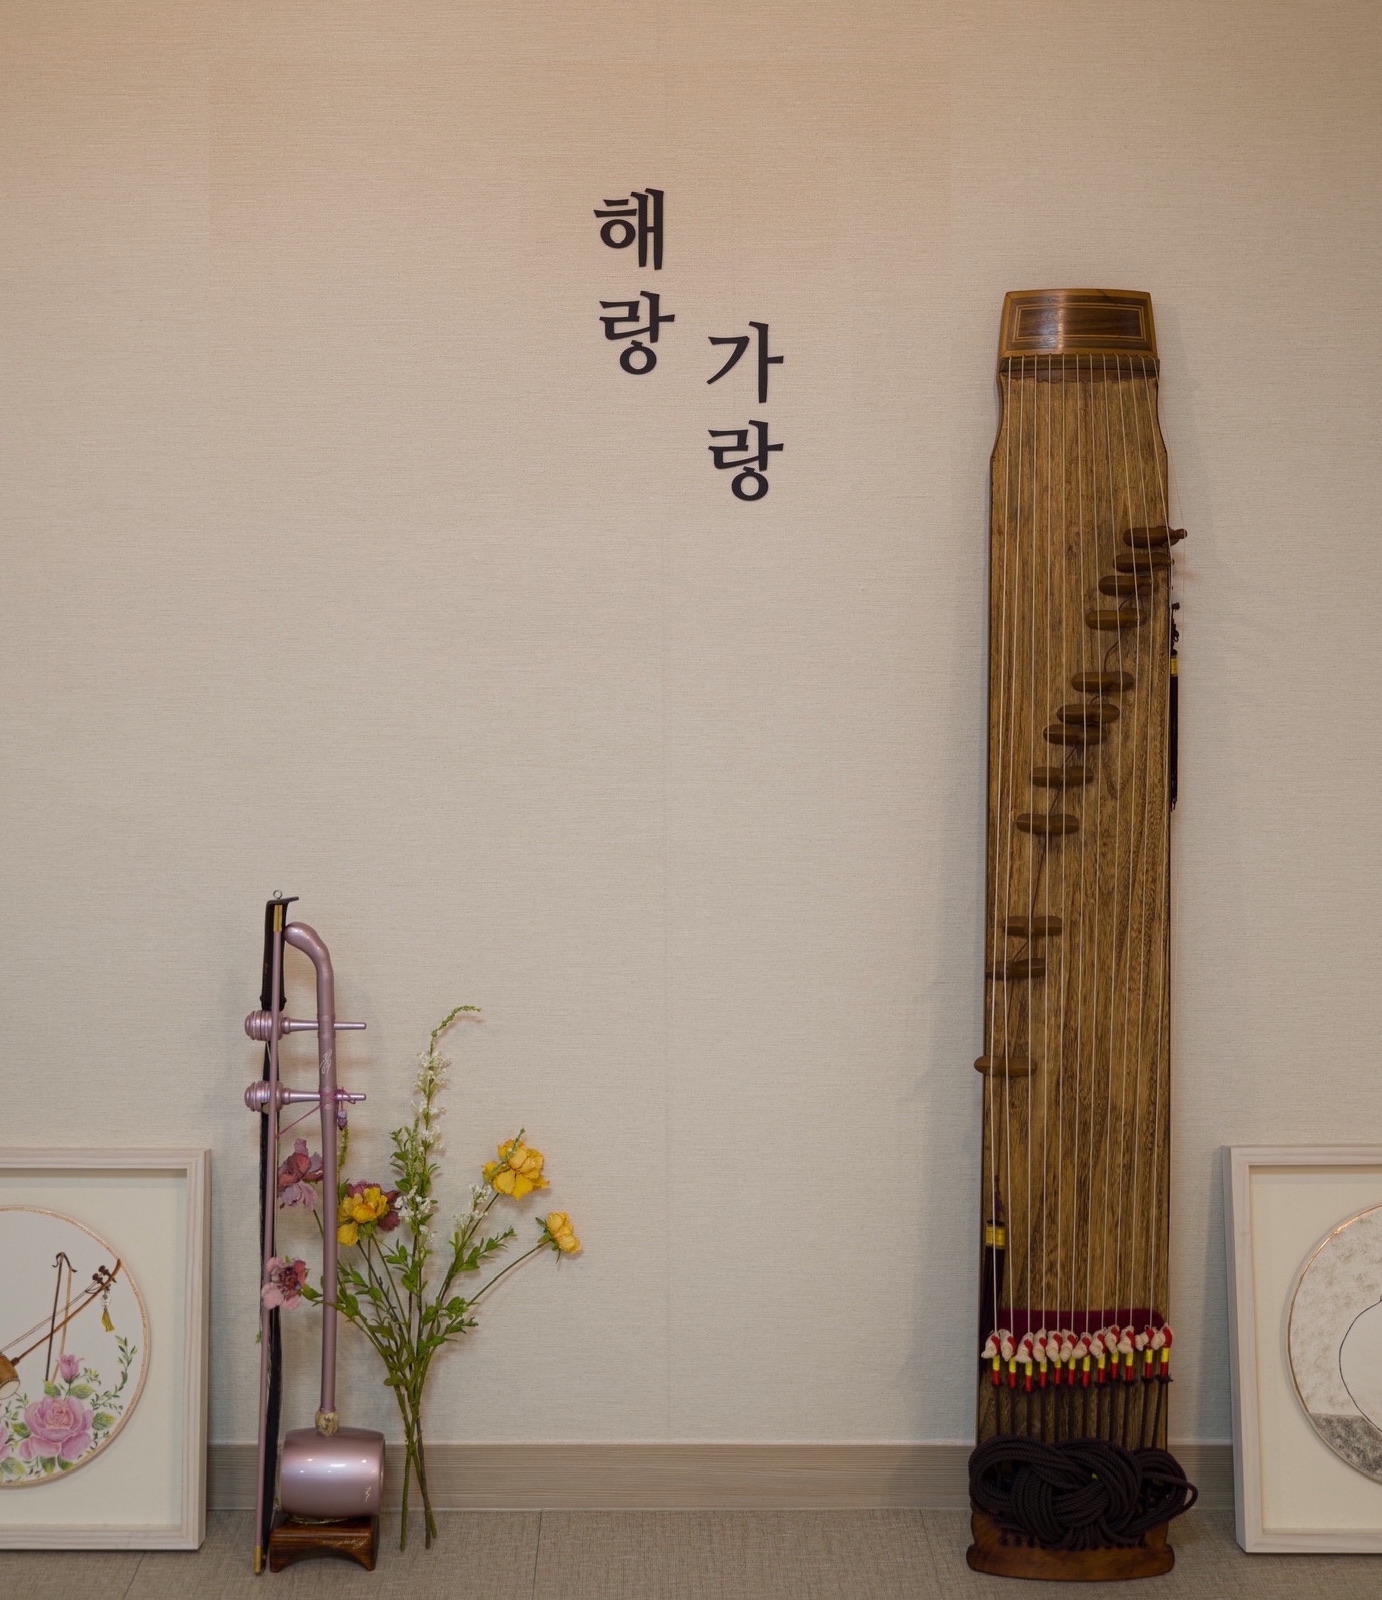 해랑
가랑